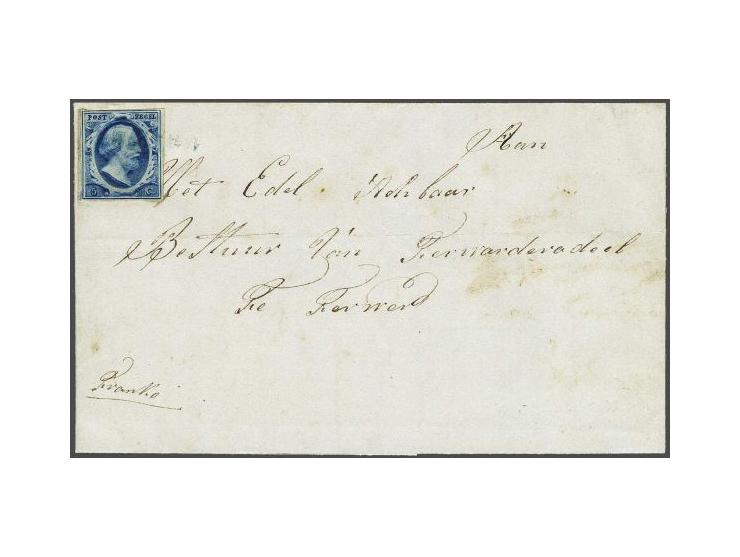 POST ZEGEL
5 C
Aan
Het Edel Achbaar
Bestuur Van Ferwarderadeel
Te Ferwerd
Franko